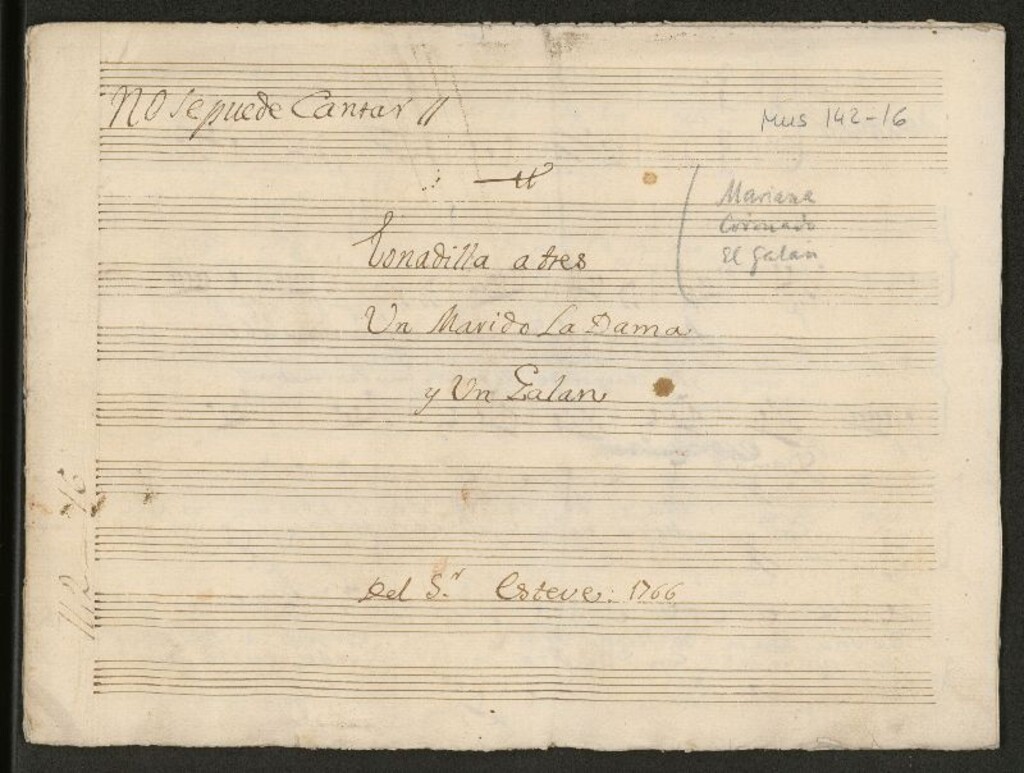 No se puede Cantar //
Mus 142-16
Mariana
Coronado
El galan
Tonadilla a tres
Un Marido La Dama
y Un Galan
Del S.r Esteve: 1766
142 16